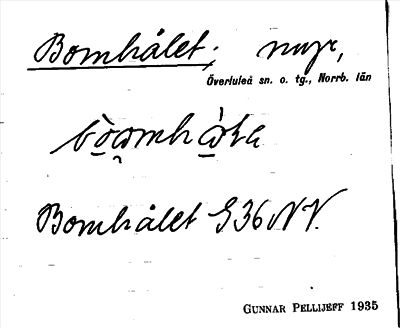 Bomhålet;
Överluleå sn. o. tg., Norrb. län
Bomhålet G36NV.
GUNNAR PELLIJEFF 1935